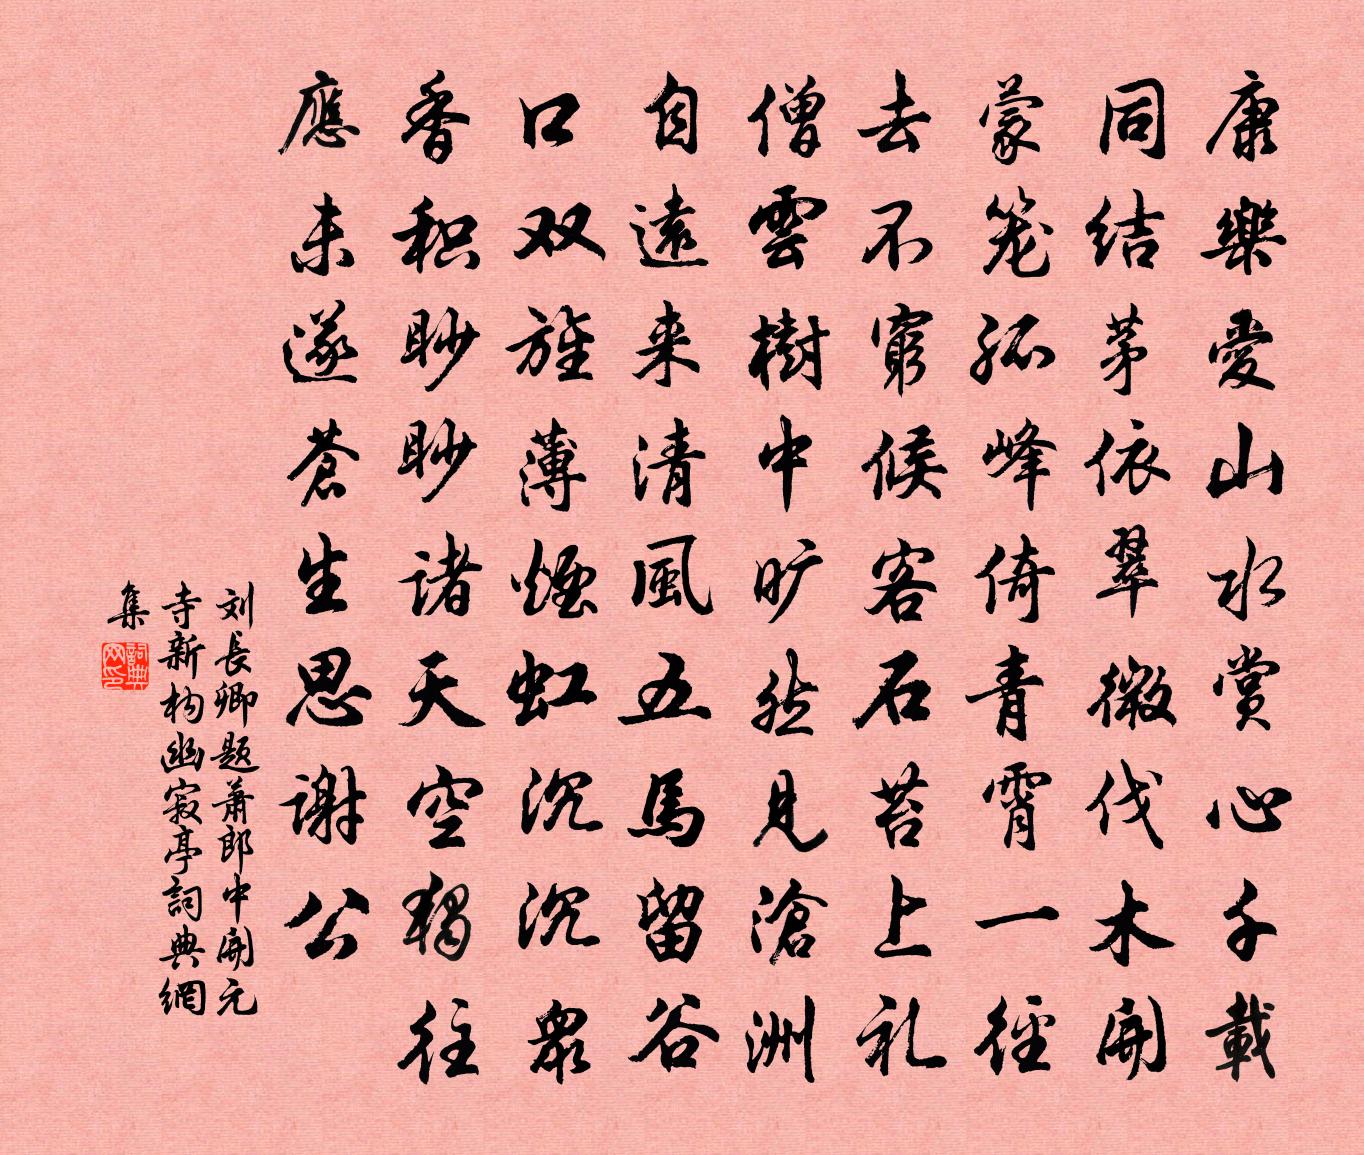 康樂愛山水賞心千載
同结茅依翠微伐木開
蒙笼孤峰倚青霄一徑
去不窮候客石苔上礼
僧雲樹中旷然見滄洲
自遠来清風五馬留谷
口双旌薄煙虹沉沉眾
香积眇眇诸天空獨往
應未遂蒼生思謝公
刘長卿題蕭郎中開元
寺新构幽寂亭詞典網
集
詞典网印